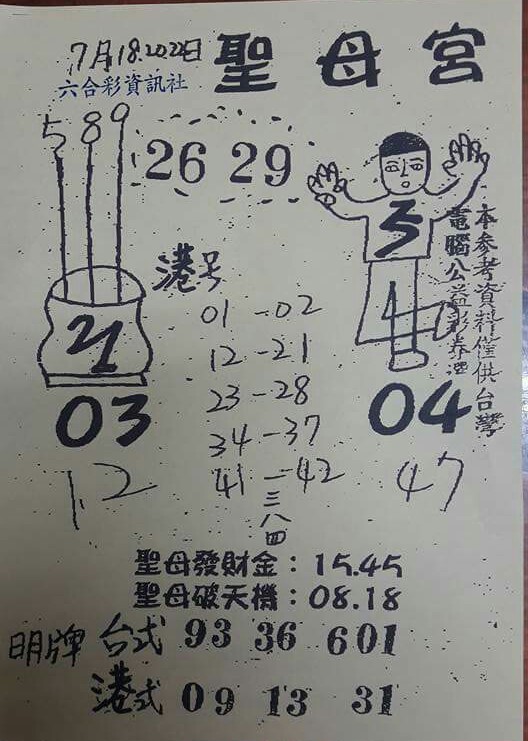 7月18.20.22日 聖母宮
六合彩資訊社
5 8 9
26 29
3
港号
01-02
12-21
23-28
34-37
41-42
三
八
四
21
03
12
04
47
本參考資料僅供台灣
電腦公益彩券
聖母發財金：15.45
聖母破天機：08.18
明牌 台式 93 36 601
港式 09 13 31